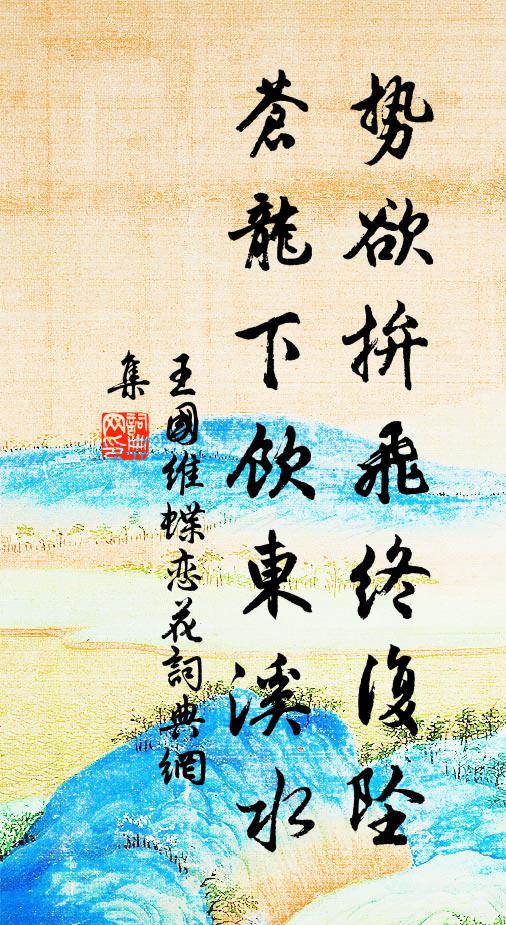 势欲拚飛终復坠
蒼龍下飲東溪水
王國維蝶恋花詞典網
集
詞典
网印